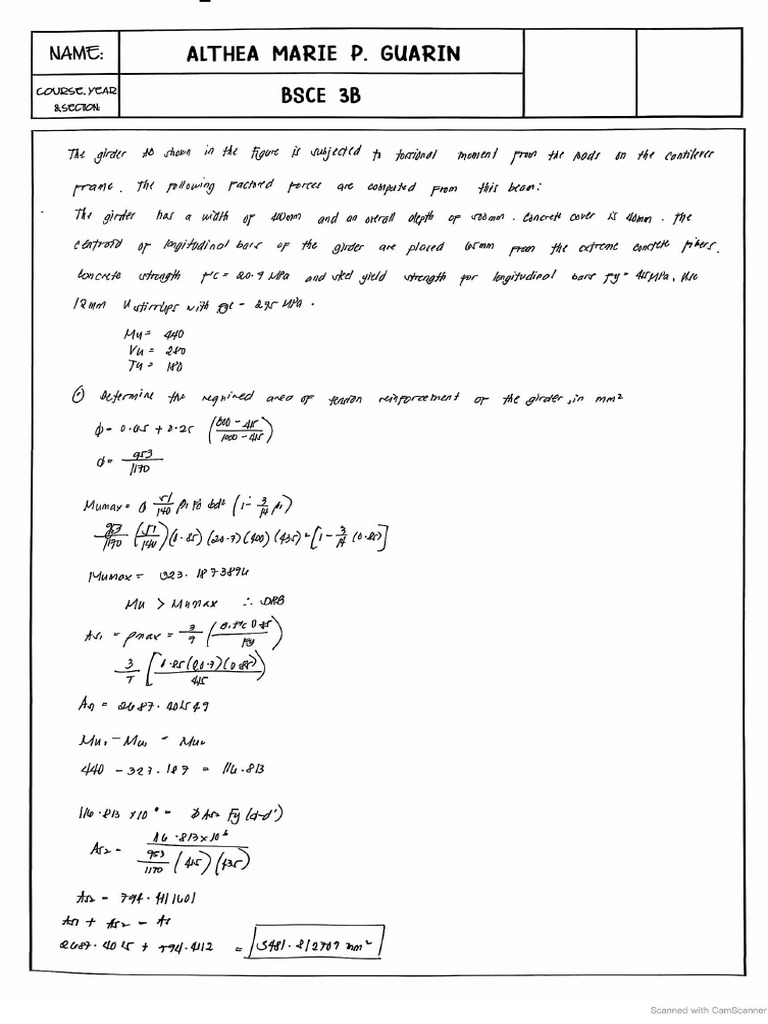 NAME:
ALTHEA MARIE P. GUARIN
COURSE, YEAR
& SECTION:
BSCE 3B
The girder as shown in the figure is subjected to torsional moment from the loads on the cantilever
frame. The following factored forces are computed from this beam:
The girder has a width of 400mm and an overall depth of 500mm. Concrete cover is 40mm. The
centroid of longitudinal bars of the girder are placed 65mm from the extreme concrete fibers.
Concrete strength f'c = 20.7 MPa and steel yield strength for longitudinal bars fy = 415 MPa. Use
12mm U stirrups with = 275 MPa.
Mu = 440
Vu = 280
Tu = 180
Determine the required area of tension reinforcement of the girder, in mm²
ϕ = 0.65 + 0.25 (600 - 415 / 1000 - 415)
ϕ = 953 / 1170
Mumax = ϕ 51/140 β1 f'c bd² (1 - 3/14 β1)
953/1170 (51/140) (0.85) (20.7) (400) (435)² [1 - 3/14 (0.85)]
Mumax = 323.1873896
Mu > Mumax ∴ DRB
As1 = ρmax = 3/7
3/7 [0.85 (20.7) (0.85) / 415]
As1 = 2687.401549
Mu - Mu1 = Mu2
440 - 323.187 = 116.813
116.813 x10⁶ = ϕ As2 Fy (d-d')
As2 = 116.813x10⁶ / 953/1170 (415) (435)
As2 = 794.411601
As1 + As2 = As
2687.4015 + 794.4112 = 3481.812707 mm²
Scanned with CamScanner